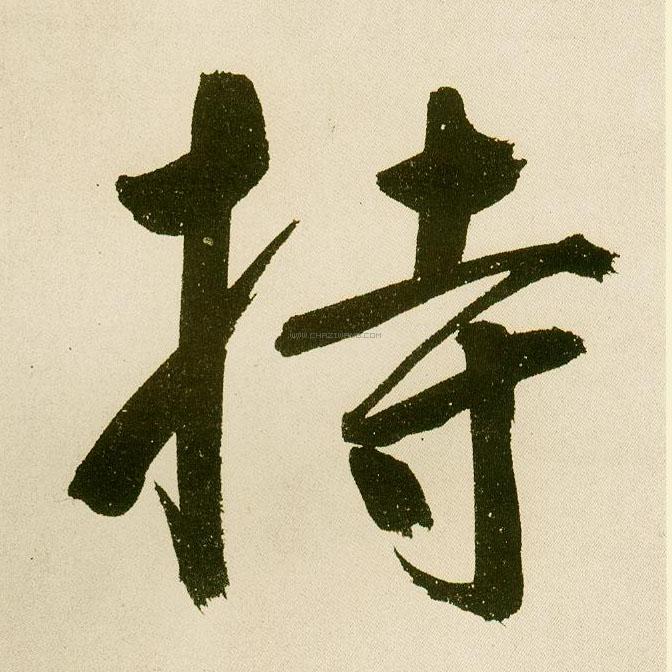 持
WWW.CHAZIWANG.COM